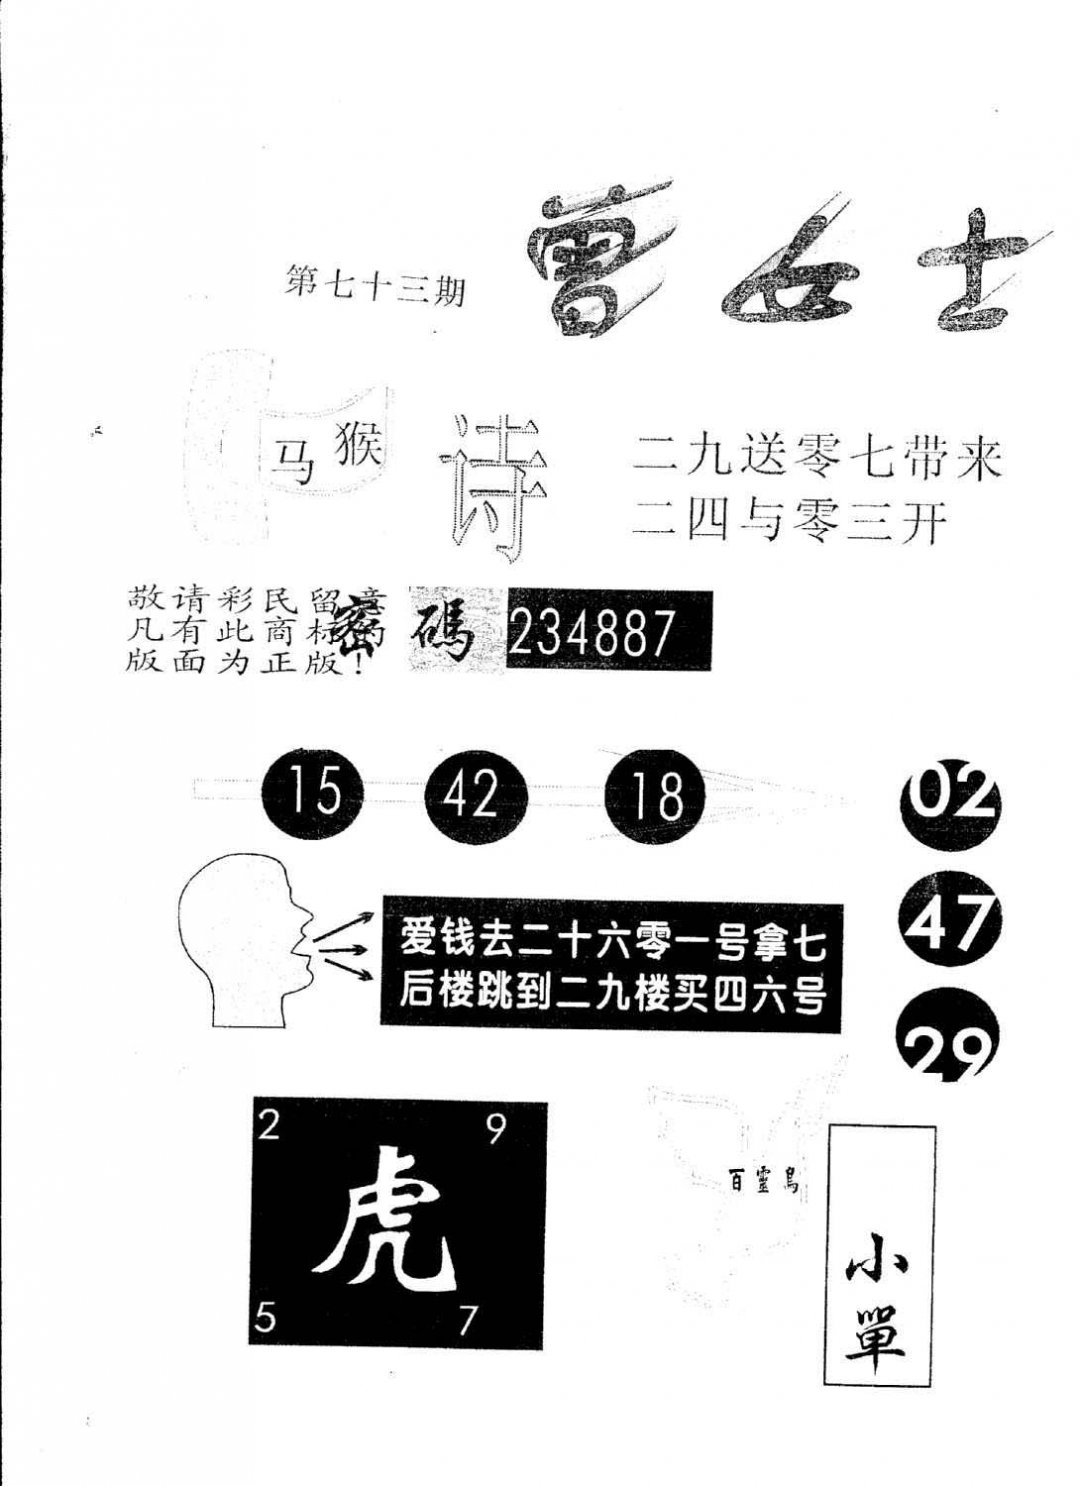 第七十三期
曾女士
马猴
诗
二九送零七带来
二四与零三开
敬请彩民留意
凡有此商标的
版面为正版！
密碼
234887
15 42 18
02
47
29
爱钱去二十六零一号拿七
后楼跳到二九楼买四六号
2 9
虎
5 7
百靈鳥
小單